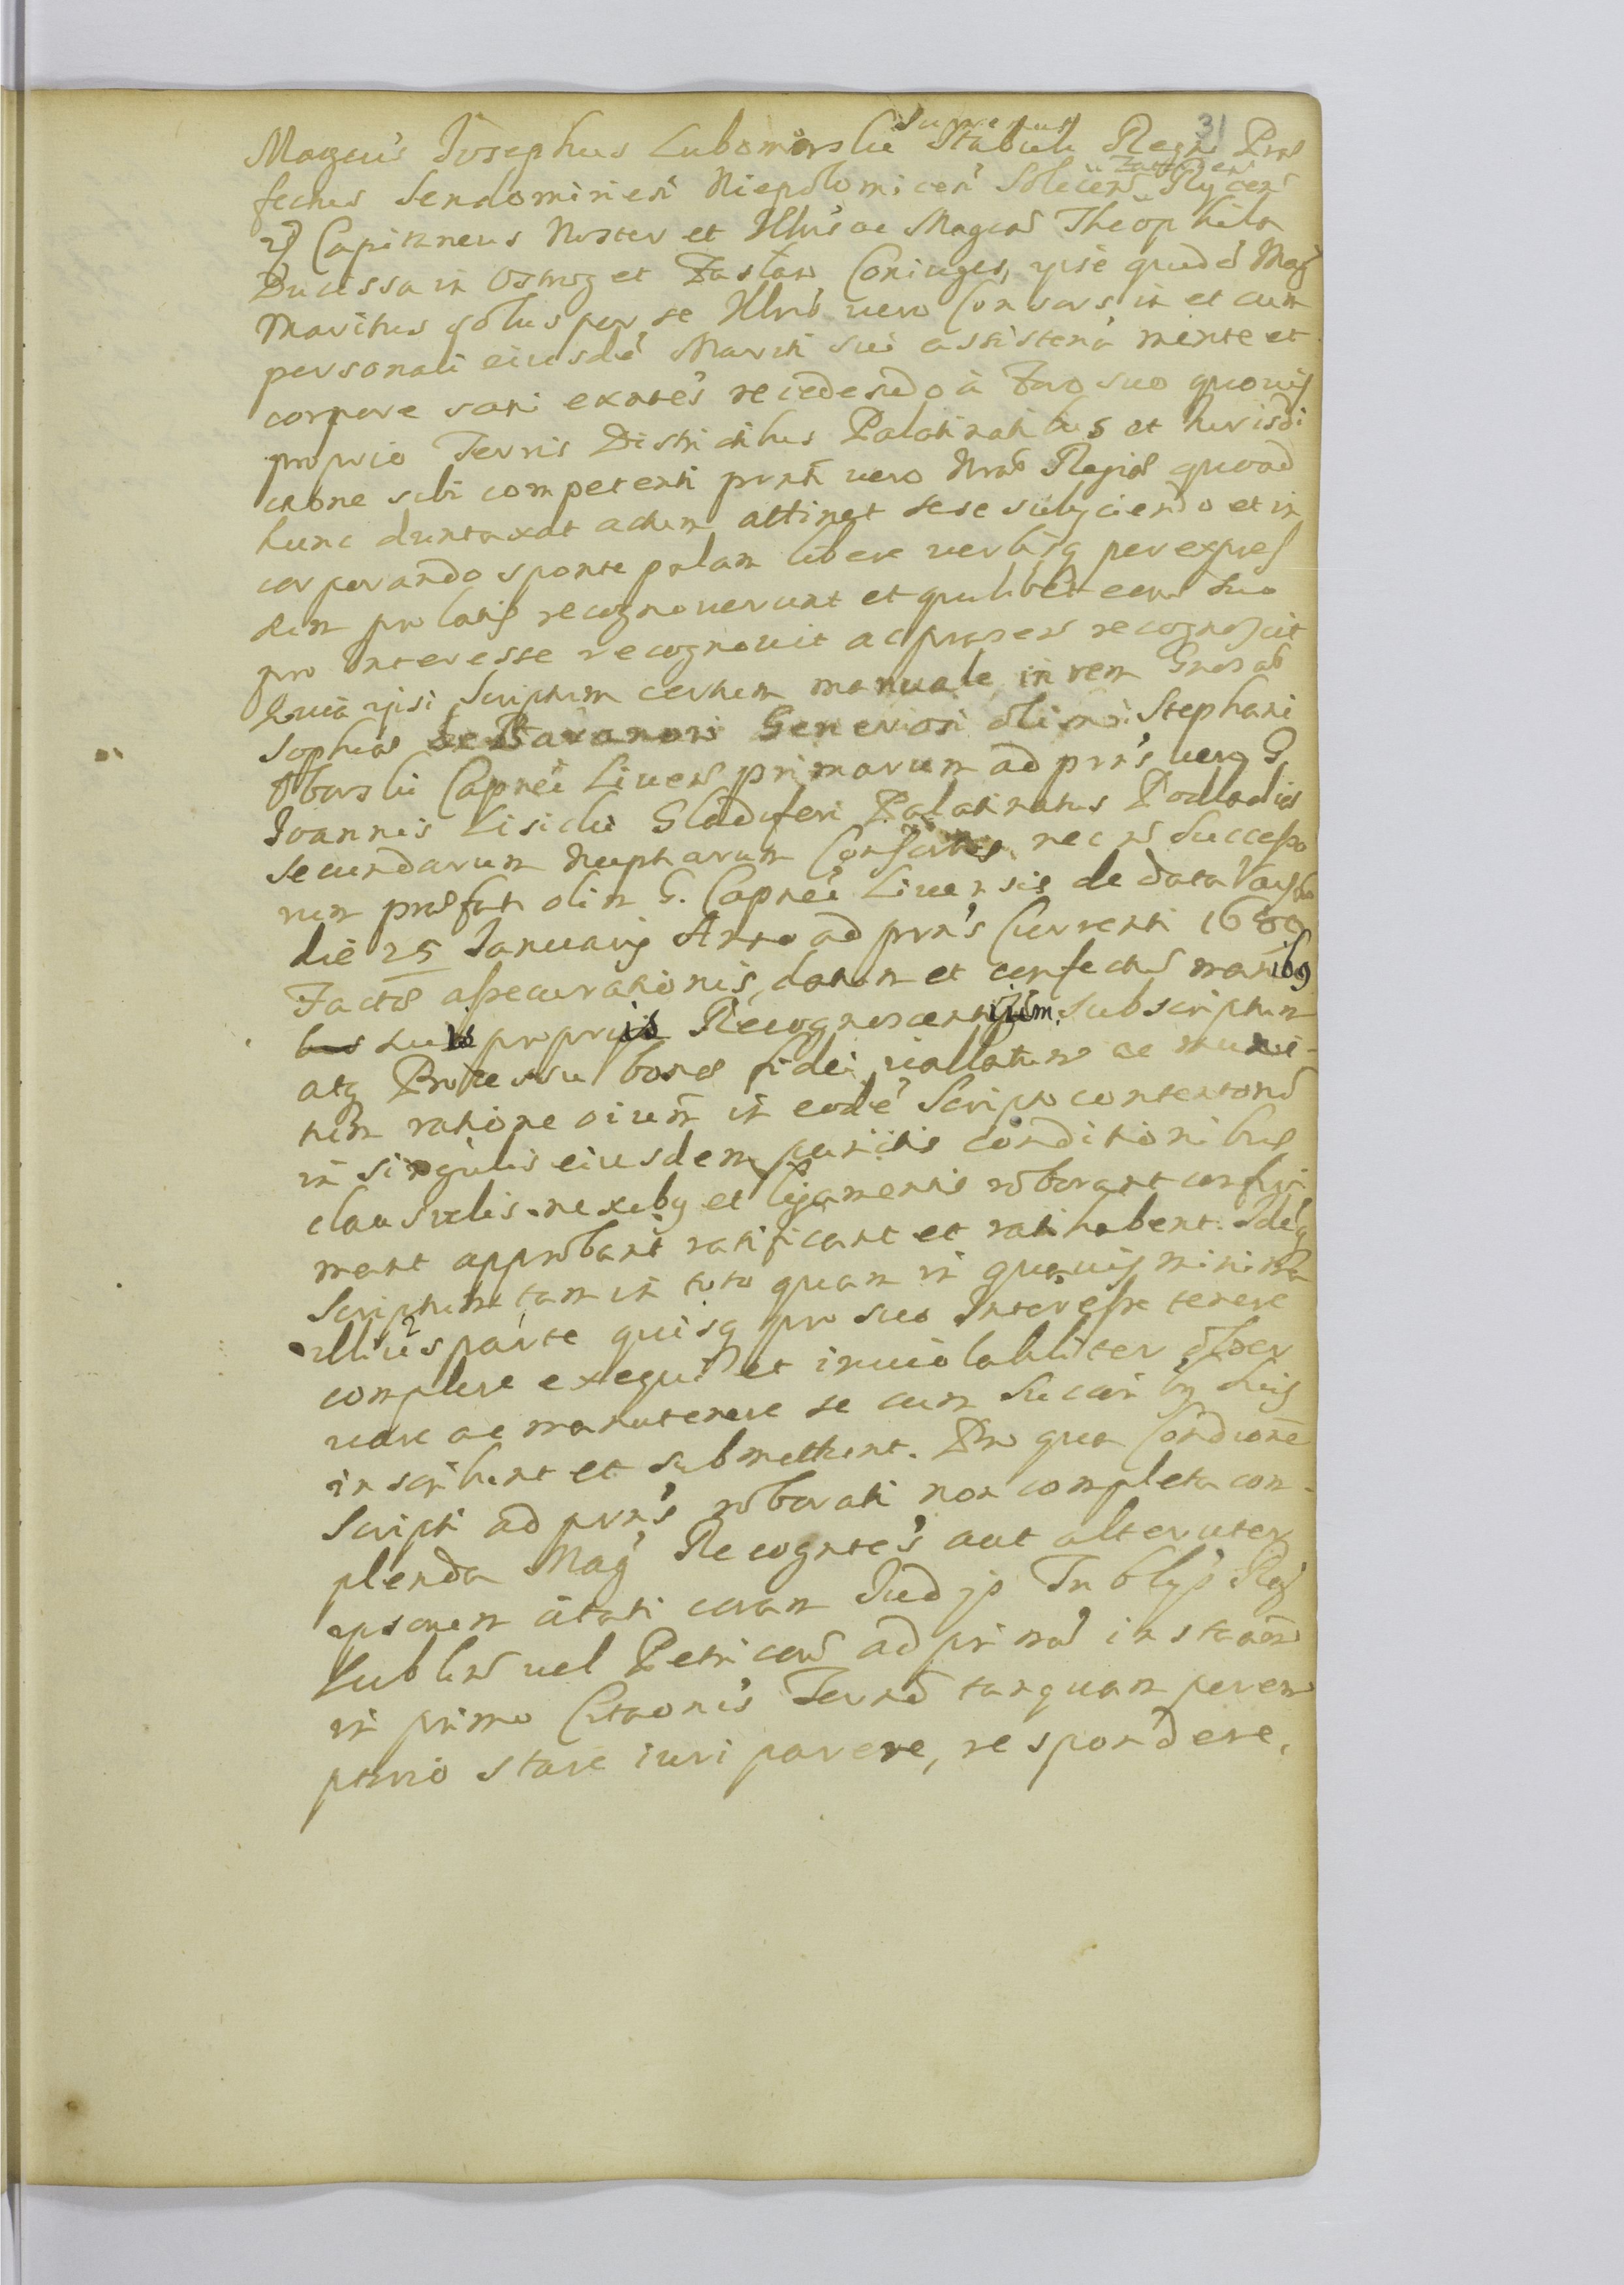 31
Supremus
Magcus Josephus Lubomirski Stabuli Regni Præ
Zator en
fectus Sendomirien Niepołomicen Solecen Rÿcen
Capitaneus Noster et Illris ac Magca Theophila
Ducissa in Ostrog et Zasław Coniuges, ipse quidé Mag
Maritus solus per se Illris vero Consors in et cum
personali eiusdé Mariti sui assistená mente et
corpore sani exntés recedendo à Foro suo quouis
proprio Terris Districtibus Palatinatibus et Iurisdi
ctione sibi competenti prnti vero Nræ Regiæ quoad
hunc duntaxat actum attinet sese subijciendo et in
corporando sponte palam libere verbisq per expres
sum prolatis recognoverunt et quilibet eorum suo
pro interesse recognouit ac præsen recognoscit
Quia ipsi Scriptum certum manuale in rem Gnosæ
Sophiæ de Baranow Generosi olim Stephani
Oborski Capnei Liuen primarum ad prns vero G.
Joannis Lisicki Gladiferi Palatinatus Podlachiæ
secundarum nuptiarum Consortis nec n Successo
rum præfati olim G. Capnei Liuensis de data
die 25 Januarij Anno ad prns Currenti 1680
Factæ assecurationis, datum et confectum manibq
suis propriis Recognoscentium subscriptum
atq Processu bonæ fidei vallatum ac muni-
tum ratione oium in eodé Scripto contentorum
in singulis eiusdem punctis conditionibus
clausulis nexibq et ligamentis roborant confir
mant approbant ratificant et ratihabent. Idéq
Scriptum tam in toto quam in quauis minima
illius parte quisq pro suo Interesse tenere
complere exequi et inuiolabiliter obser
uare ac manutenere se cum Succor bq suis
inscribunt et submittunt. Pro qua Condione
Scripti ad prns roborati non completa com-
plenda Mag Recogntes aut alteruter
ipsorum citati coram Jud jo Tnblijs Reg
Lublin uel Petricou ad primā instam
in primo Citaonis Termo tanquam perem
ptorio stare iuri parere, respondere,